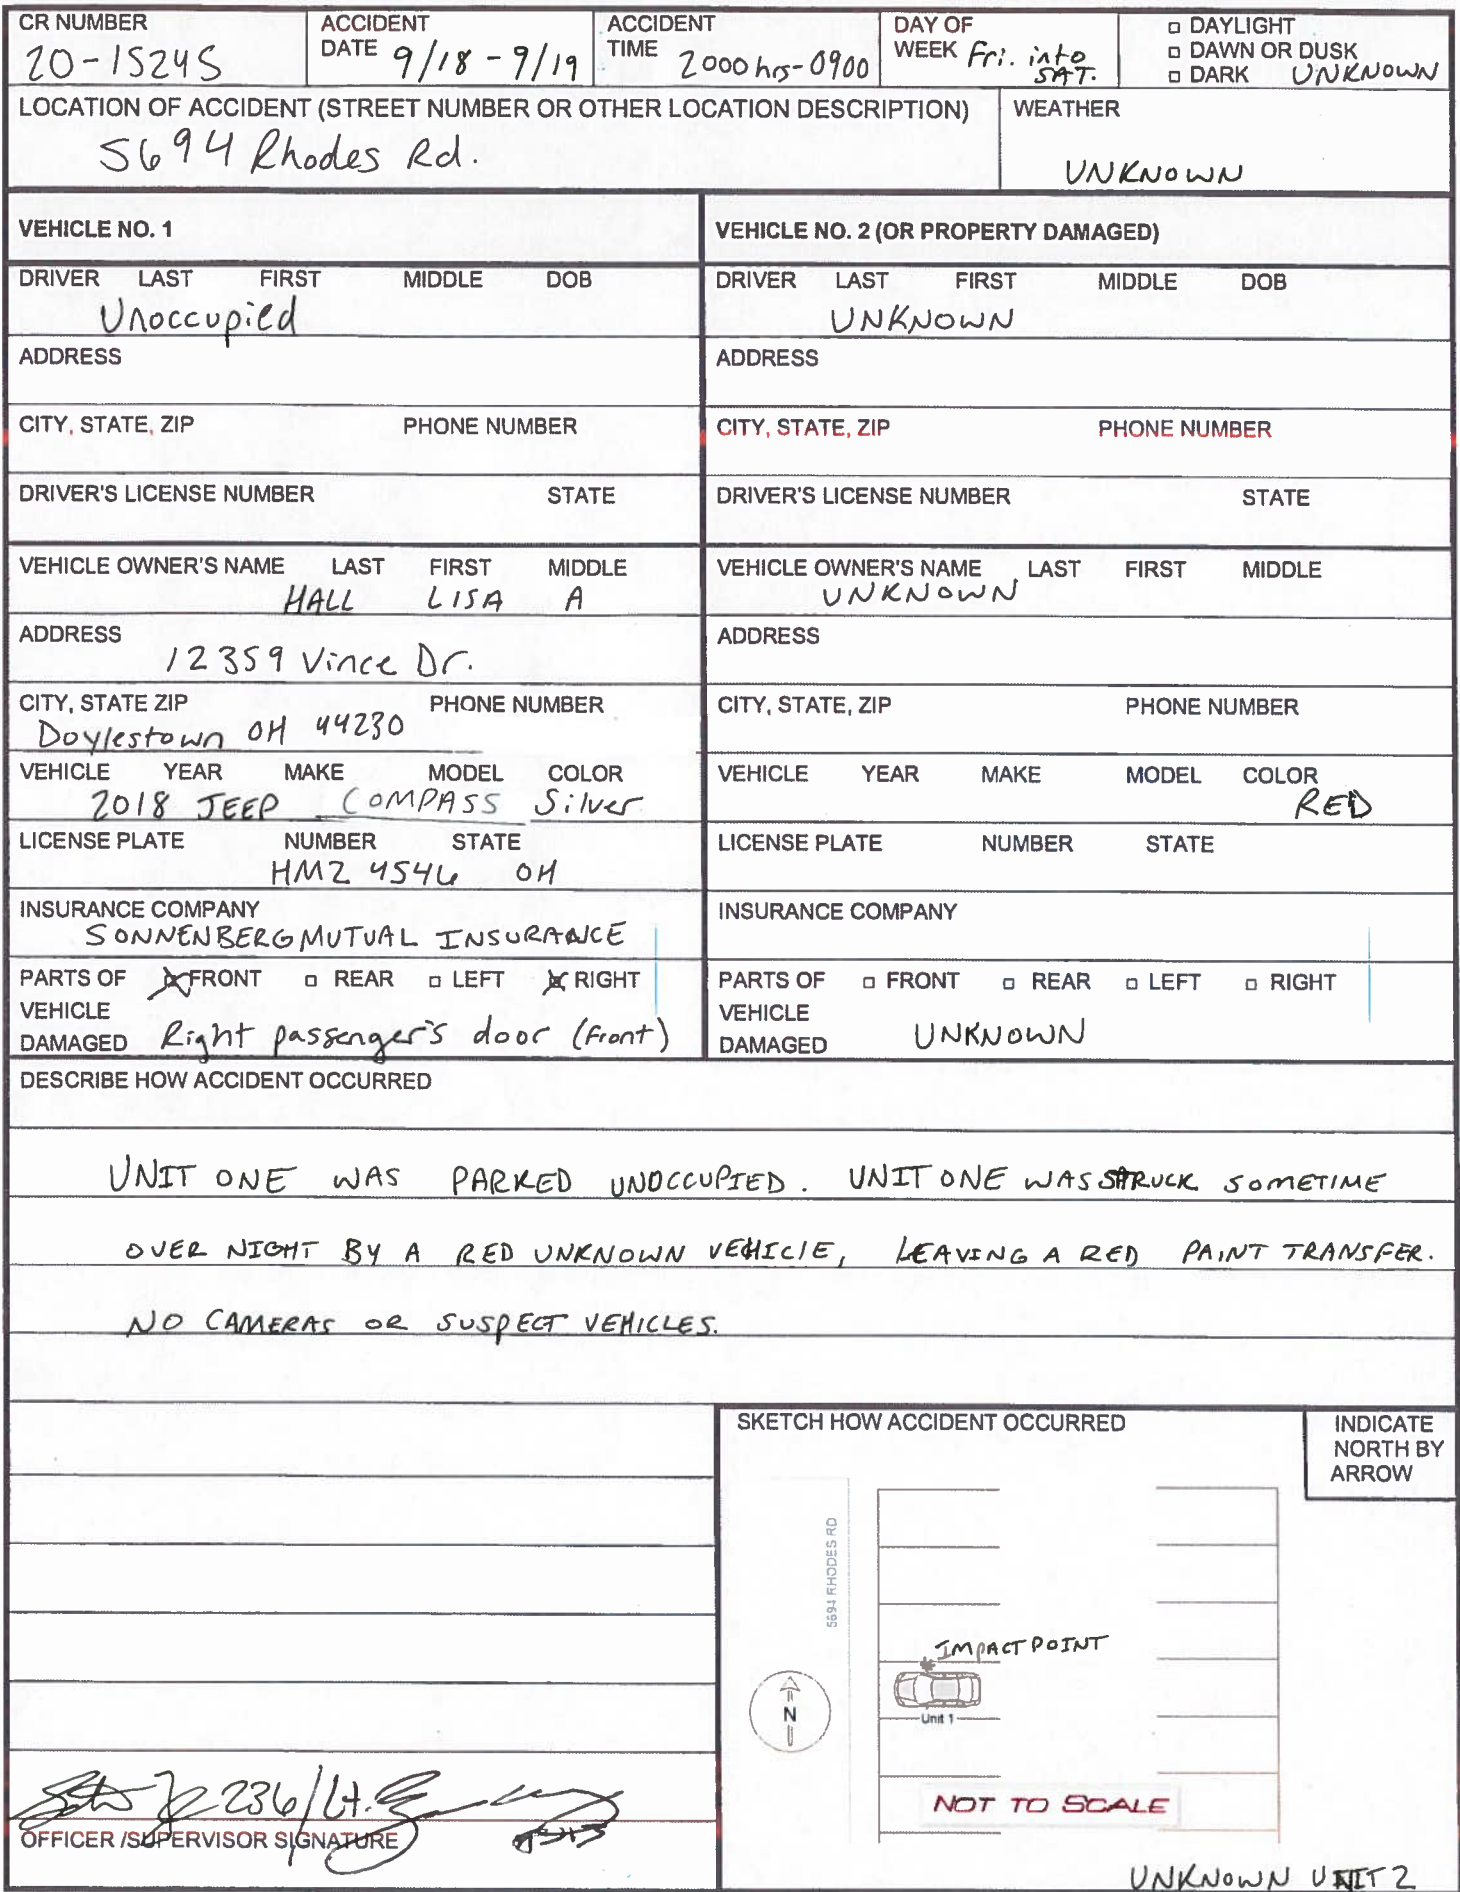 CR NUMBER
20-15245
ACCIDENT
DATE 9/18 - 9/19
ACCIDENT
TIME 2000 hrs-0900
DAY OF
WEEK Fri. into
SAT.
DAYLIGHT
DAWN OR DUSK
DARK UNKNOWN
LOCATION OF ACCIDENT (STREET NUMBER OR OTHER LOCATION DESCRIPTION)
5694 Rhodes Rd.
WEATHER
UNKNOWN
VEHICLE NO. 1
DRIVER LAST FIRST MIDDLE DOB
Unoccupied
ADDRESS
CITY, STATE, ZIP PHONE NUMBER
DRIVER'S LICENSE NUMBER STATE
VEHICLE OWNER'S NAME LAST FIRST MIDDLE
HALL LISA A
ADDRESS
12359 Vince Dr.
CITY, STATE ZIP PHONE NUMBER
Doylestown OH 44230
VEHICLE YEAR MAKE MODEL COLOR
2018 JEEP COMPASS Silver
LICENSE PLATE NUMBER STATE
HMZ 4546 OH
INSURANCE COMPANY
SONNENBERG MUTUAL INSURANCE
PARTS OF FRONT REAR LEFT RIGHT
VEHICLE
DAMAGED Right passenger's door (front)
VEHICLE NO. 2 (OR PROPERTY DAMAGED)
DRIVER LAST FIRST MIDDLE DOB
UNKNOWN
ADDRESS
CITY, STATE, ZIP PHONE NUMBER
DRIVER'S LICENSE NUMBER STATE
VEHICLE OWNER'S NAME LAST FIRST MIDDLE
UNKNOWN
ADDRESS
CITY, STATE, ZIP PHONE NUMBER
VEHICLE YEAR MAKE MODEL COLOR
RED
LICENSE PLATE NUMBER STATE
INSURANCE COMPANY
PARTS OF FRONT REAR LEFT RIGHT
VEHICLE
DAMAGED UNKNOWN
DESCRIBE HOW ACCIDENT OCCURRED
UNIT ONE WAS PARKED UNOCCUPIED. UNIT ONE WAS STRUCK SOMETIME
OVER NIGHT BY A RED UNKNOWN VEHICLE, LEAVING A RED PAINT TRANSFER.
NO CAMERAS OR SUSPECT VEHICLES.
236/Lt.
OFFICER /SUPERVISOR SIGNATURE
SKETCH HOW ACCIDENT OCCURRED
INDICATE
NORTH BY
ARROW
5694 RHODES RD
IMPACT POINT
N
Unit 1
NOT TO SCALE
UNKNOWN UNIT 2